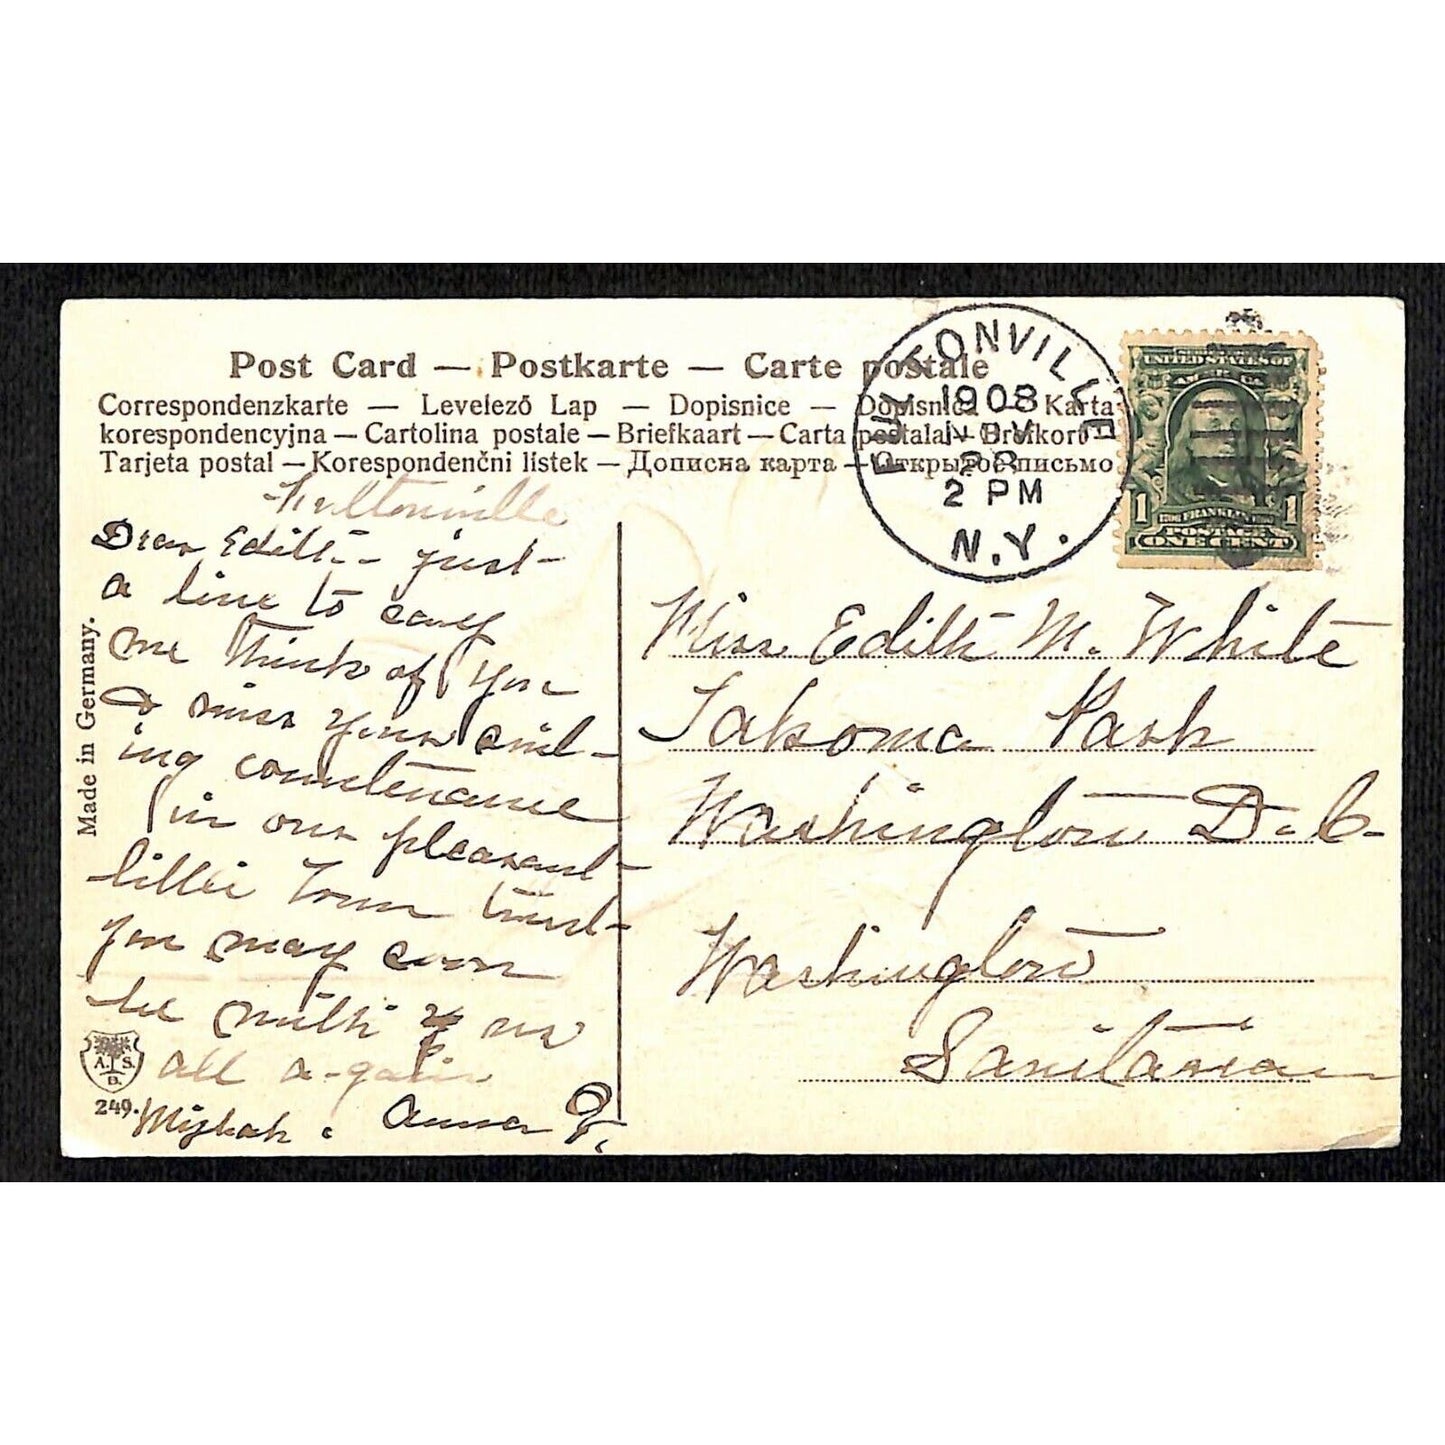 Post Card — Postkarte — Carte postale
Correspondenzkarte — Levelező Lap — Dopisnice — Dopisnica — Karta
korespondencyjna — Cartolina postale — Briefkaart — Carta postala — Brefkort
Tarjeta postal — Korespondenčni listek — Дописна карта — Открытое письмо
FULTONVILLE
1908
NOV
28
2 PM
N.Y.
UNITED STATES OF
AMERICA
1 FRANKLIN 1
POSTAGE
ONE CENT
Fultonville
Dear Edith - just
a line to say
we think of you
& miss your smil-
ing countenance
in our pleasant
little town trust
you may soon
be with us
all a-gain
Anna
Made in Germany.
A. S.
B.
249.
Miss Edith M. White
Takoma Park
Washington D.C.
Washington
Sanitarium